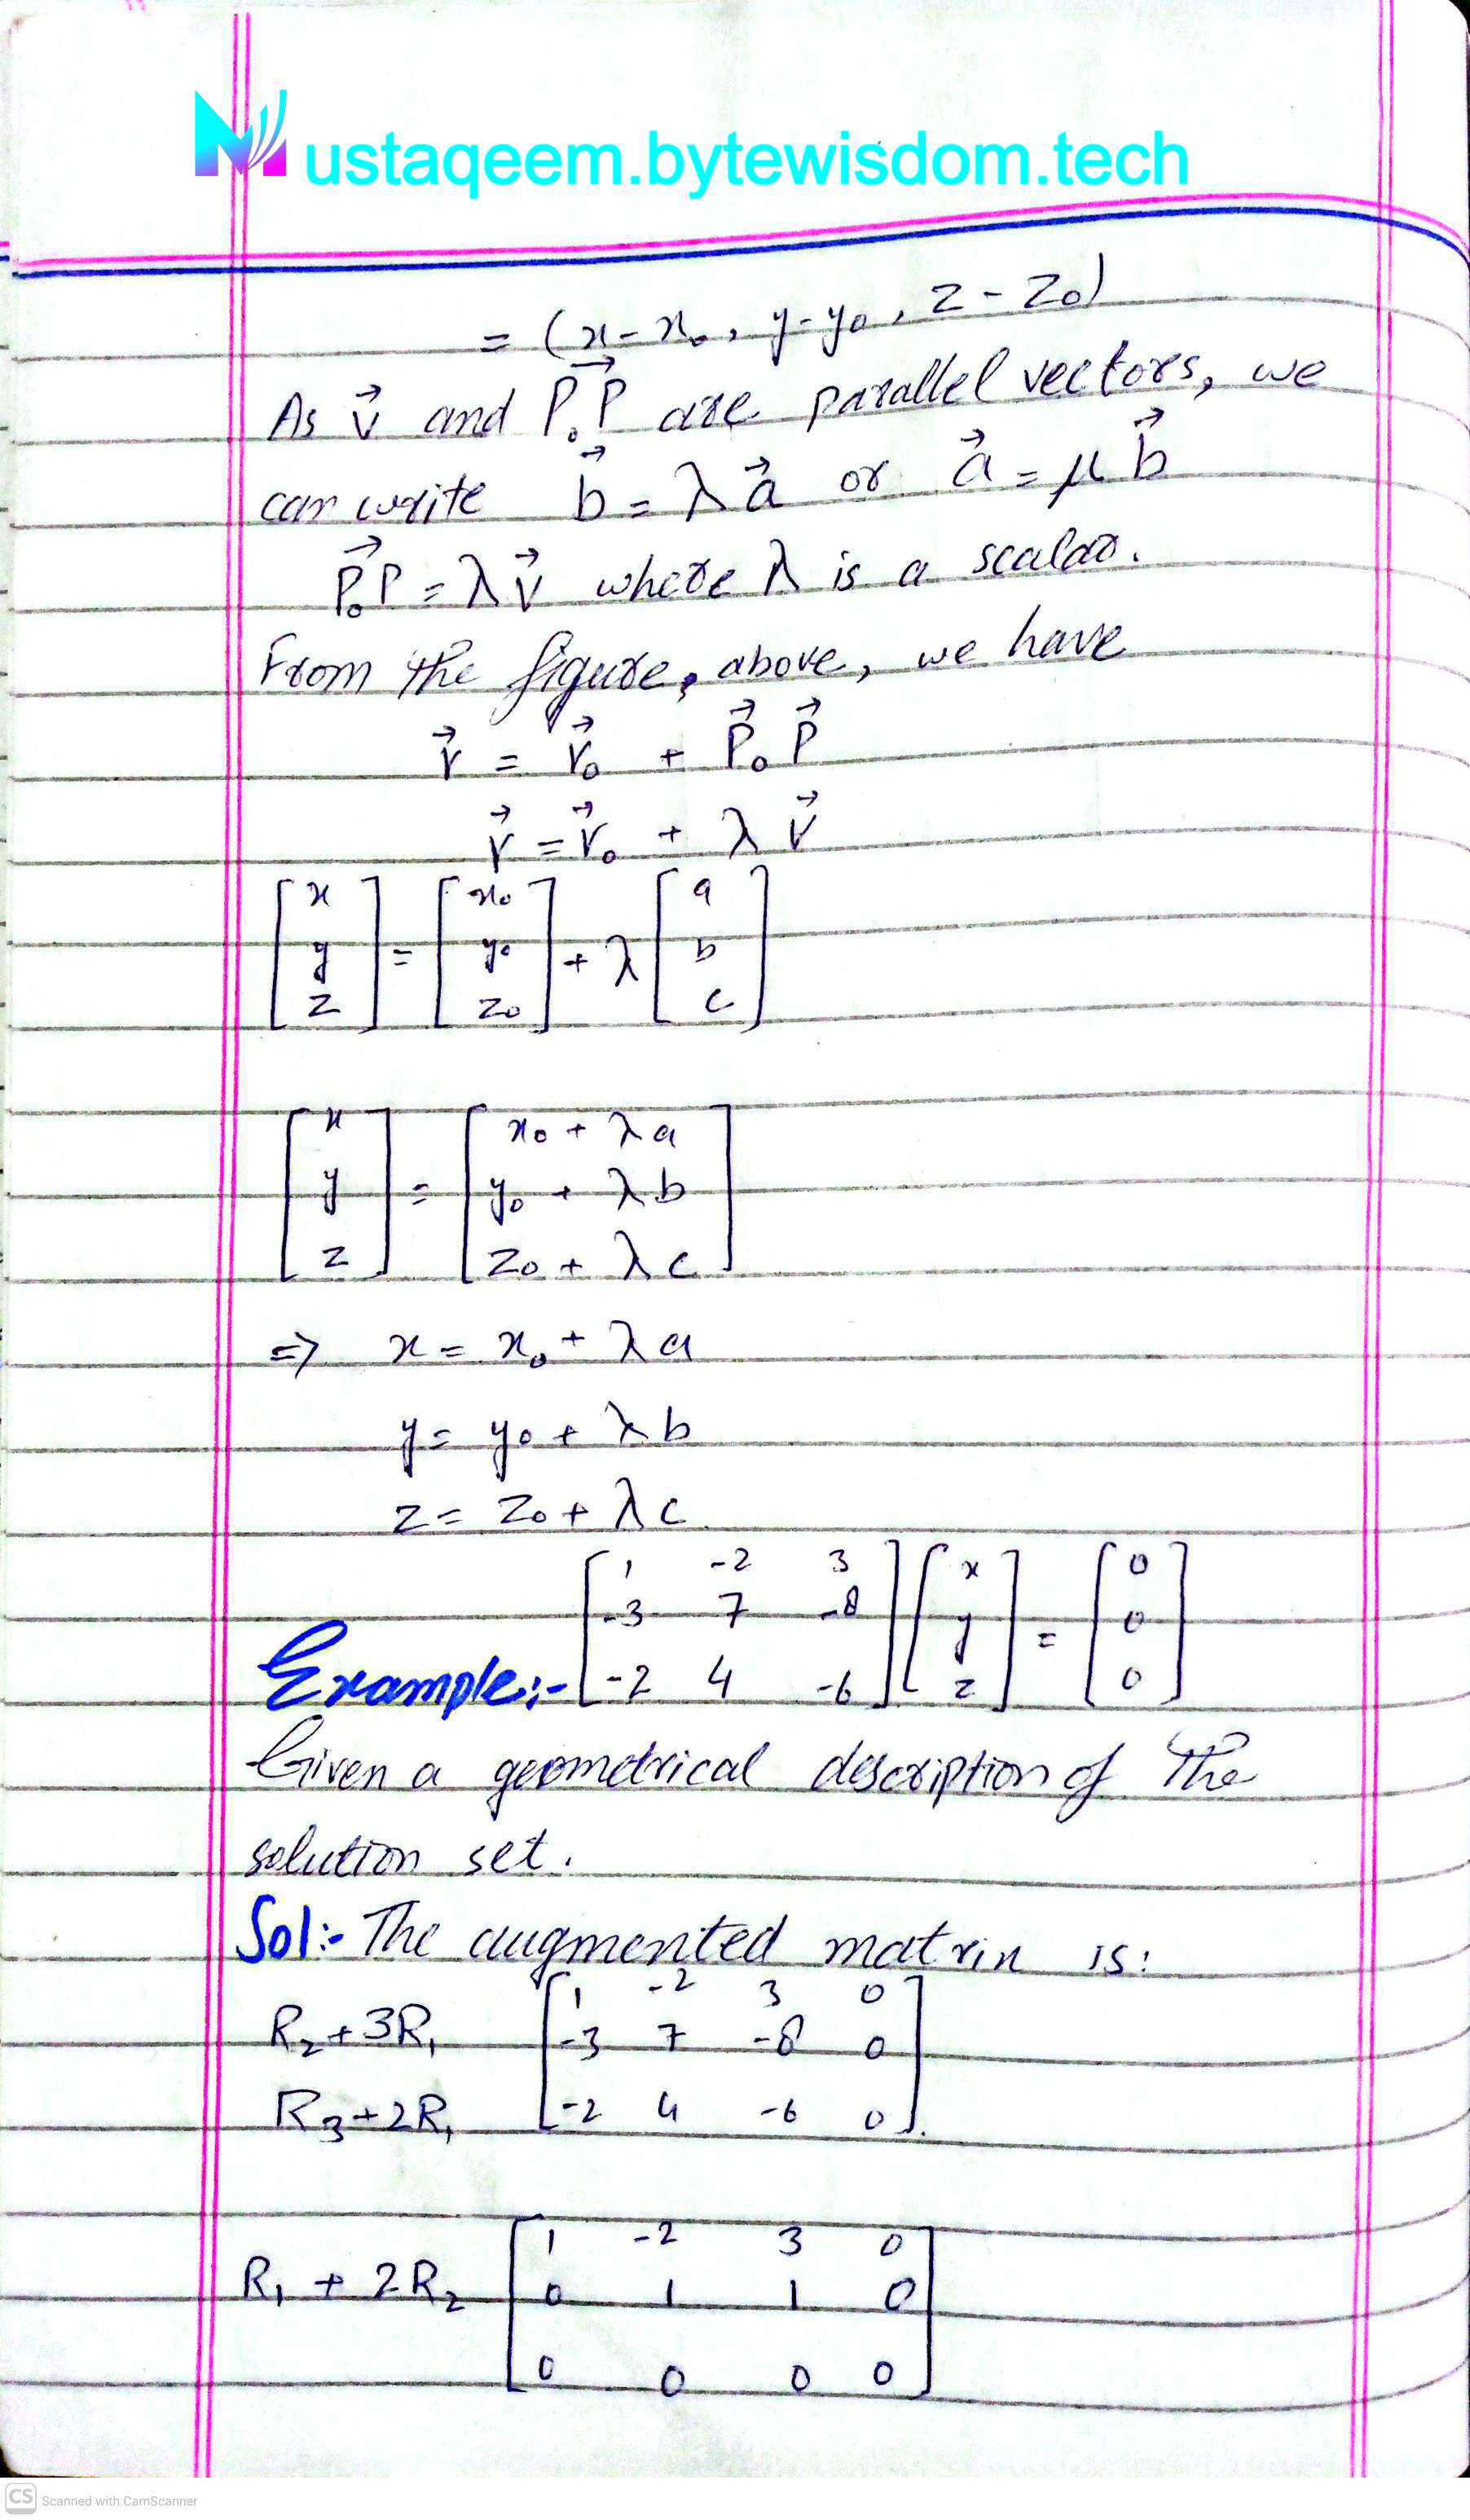 Mustaqeem.bytewisdom.tech
= (x-x₀, y-y₀, z-z₀)
As v⃗ and P₀P⃗ are parallel vectors, we
can write b⃗ = λa⃗ or a⃗ = μb⃗
P₀P⃗ = λv⃗ where λ is a scalar.
From the figure, above, we have
r⃗ = r⃗₀ + P⃗₀P⃗
r⃗ = r⃗₀ + λv⃗
[x y z] = [x₀ y₀ z₀] + λ[a b c]
[x y z] = [x₀+λa y₀+λb z₀+λc]
⇒ x = x₀ + λa
y = y₀ + λb
z = z₀ + λc
Example:- [1 -2 3; -3 7 -8; -2 4 -6] [x y z] = [0 0 0]
Given a geometrical description of the
solution set.
Sol:- The augmented matrix is:
[1 -2 3 0
R₂+3R₁ -3 7 -8 0
R₃+2R₁ -2 4 -6 0].
[1 -2 3 0
R₁ + 2R₂ 0 1 1 0
0 0 0 0]
CS Scanned with CamScanner